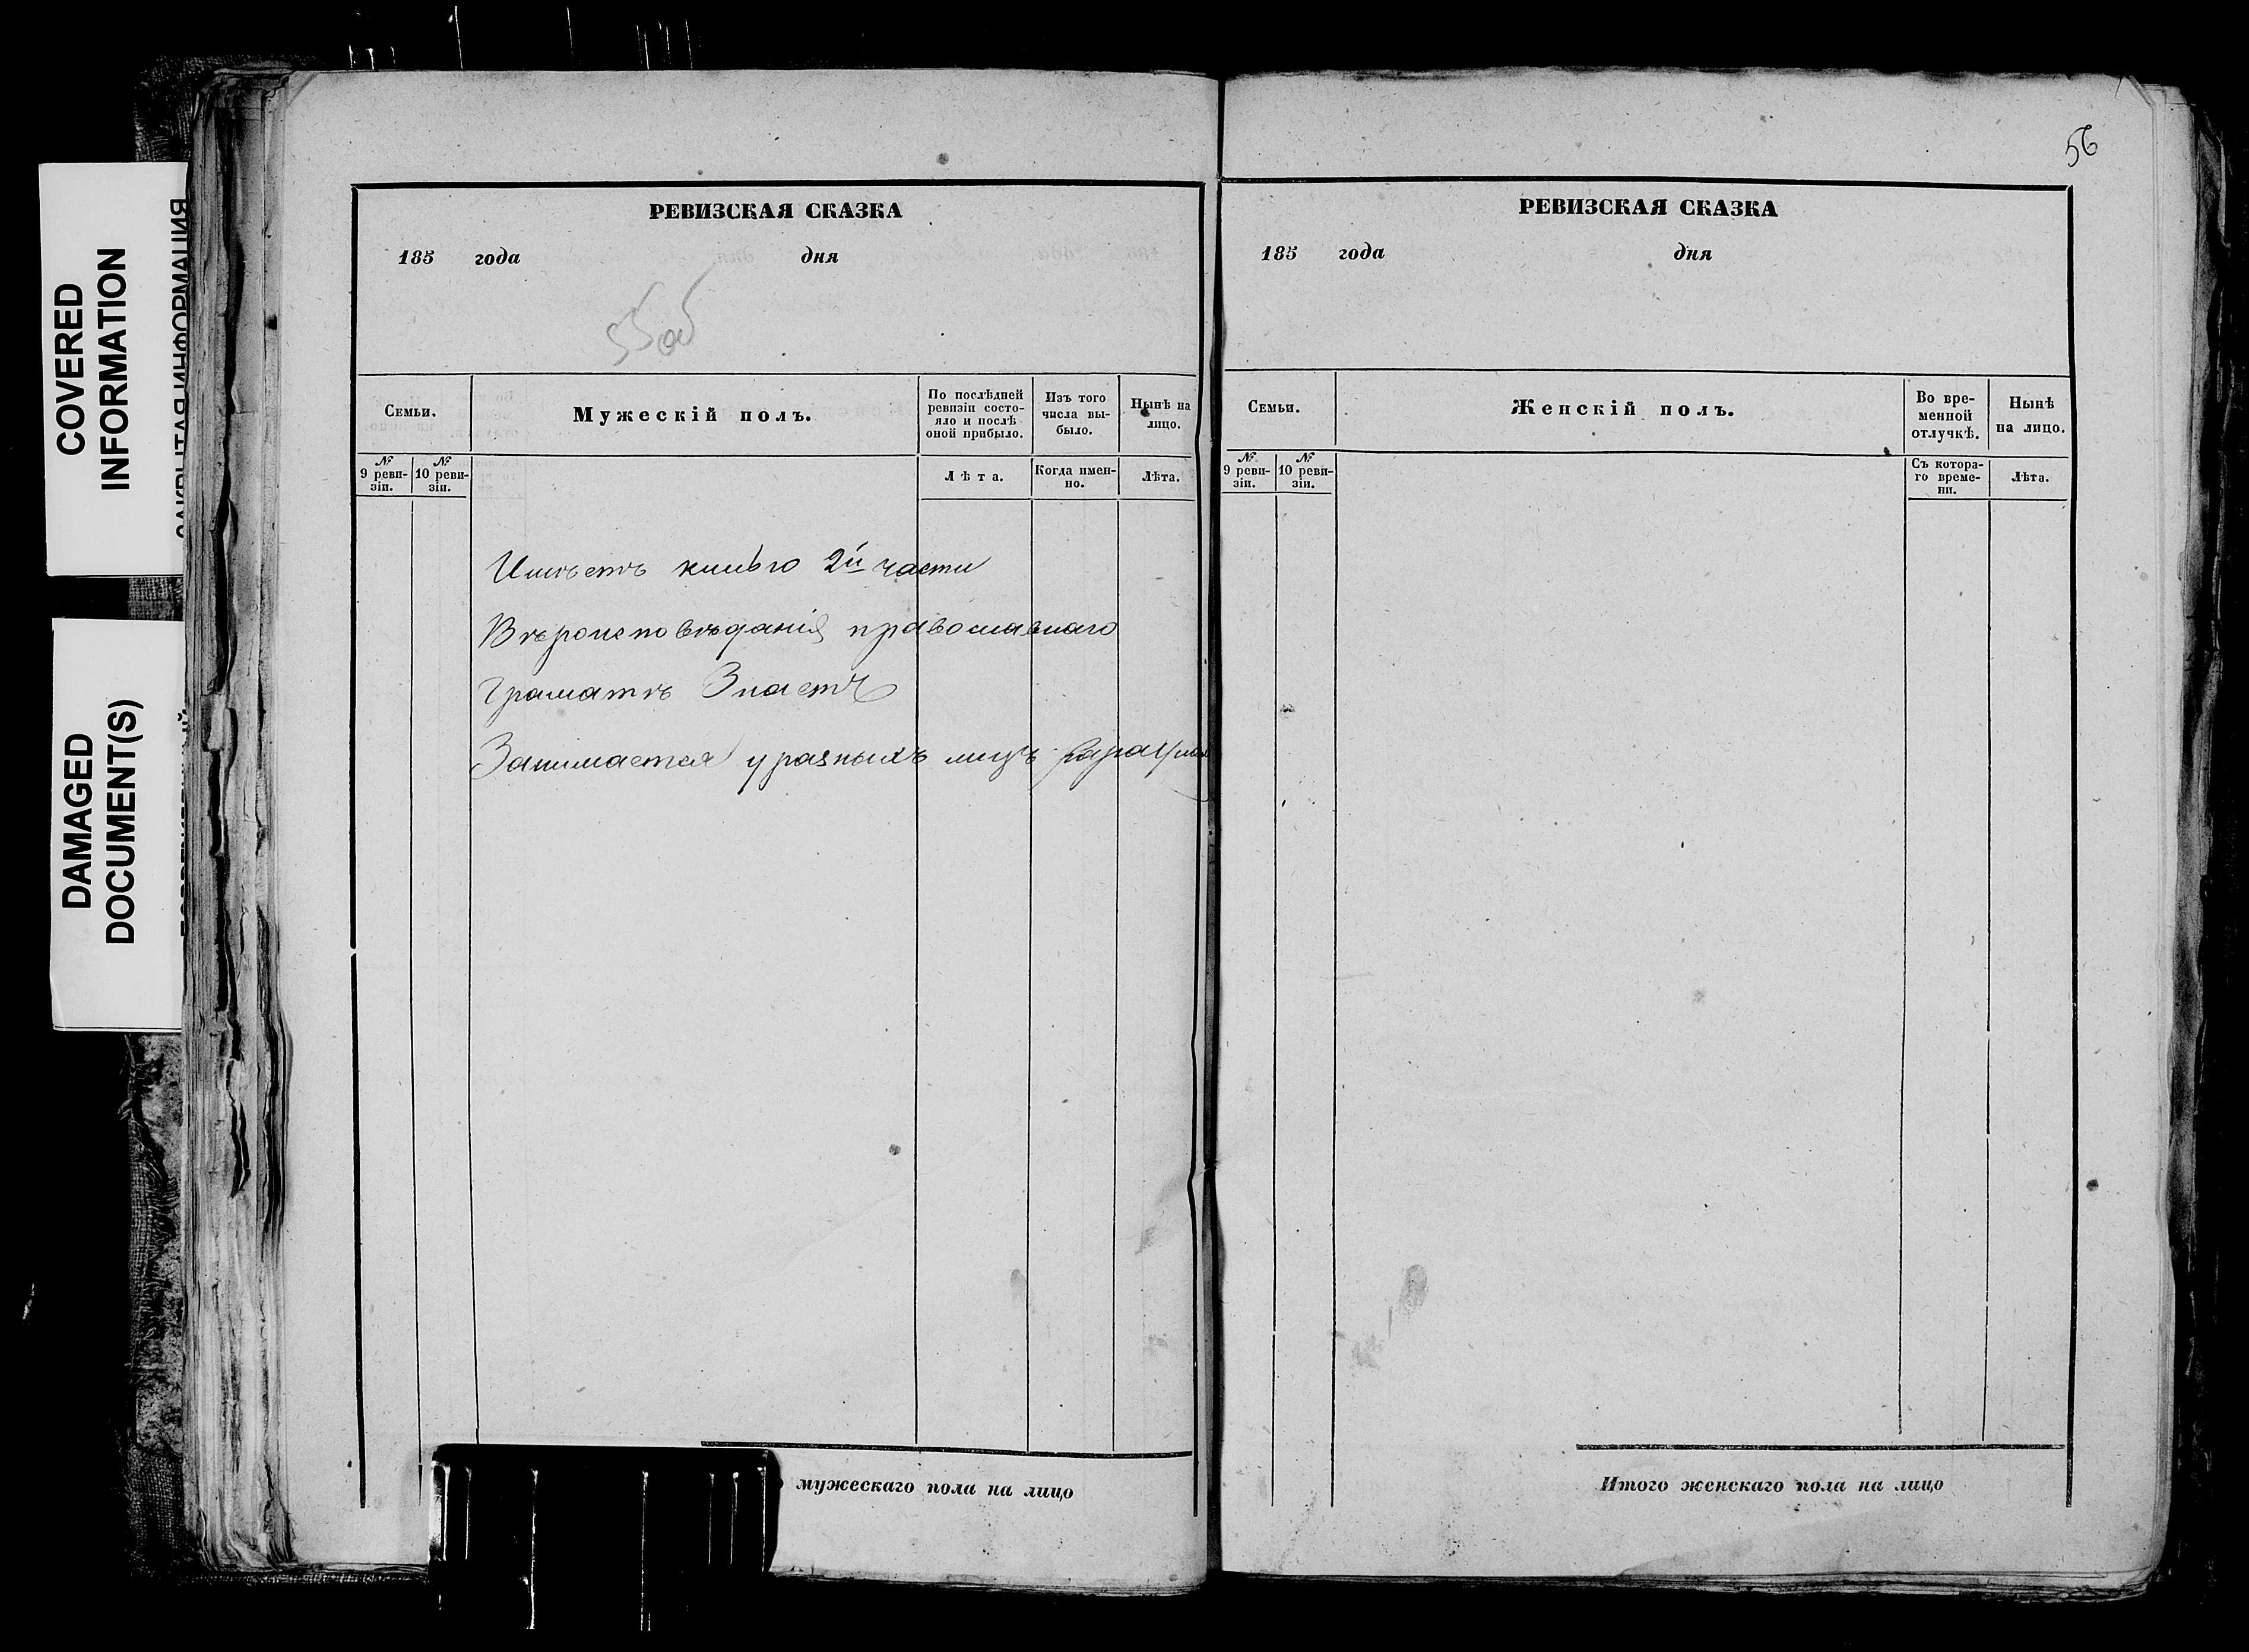 COVERED
INFORMATION
DAMAGED
DOCUMENT(S)
РЕВИЗСКАЯ СКАЗКА
185 года дня
55об
Семьи.
Мужескій полъ.
По послѣдней
ревизіи состо-
яло и послѣ
оной прибыло.
Изъ того
числа вы-
было.
Нынѣ на
лицо.
№
9 реви-
зіи.
№
10 реви-
зіи.
Лѣта.
Когда имен-
но.
Лѣта.
Имѣетъ 2й части
Вѣроисповѣданія православнаго
Граматѣ Знаетъ
Занимается у разныхъ лицъ
мужескаго пола на лицо
56
РЕВИЗСКАЯ СКАЗКА
185 года дня
Семьи.
Женскій полъ.
Во вре-
менной
отлучкѣ.
Нынѣ
на лицо.
№
9 реви-
зіи.
№
10 реви-
зіи.
Съ котора-
го време-
ни.
Лѣта.
Итого женскаго пола на лицо